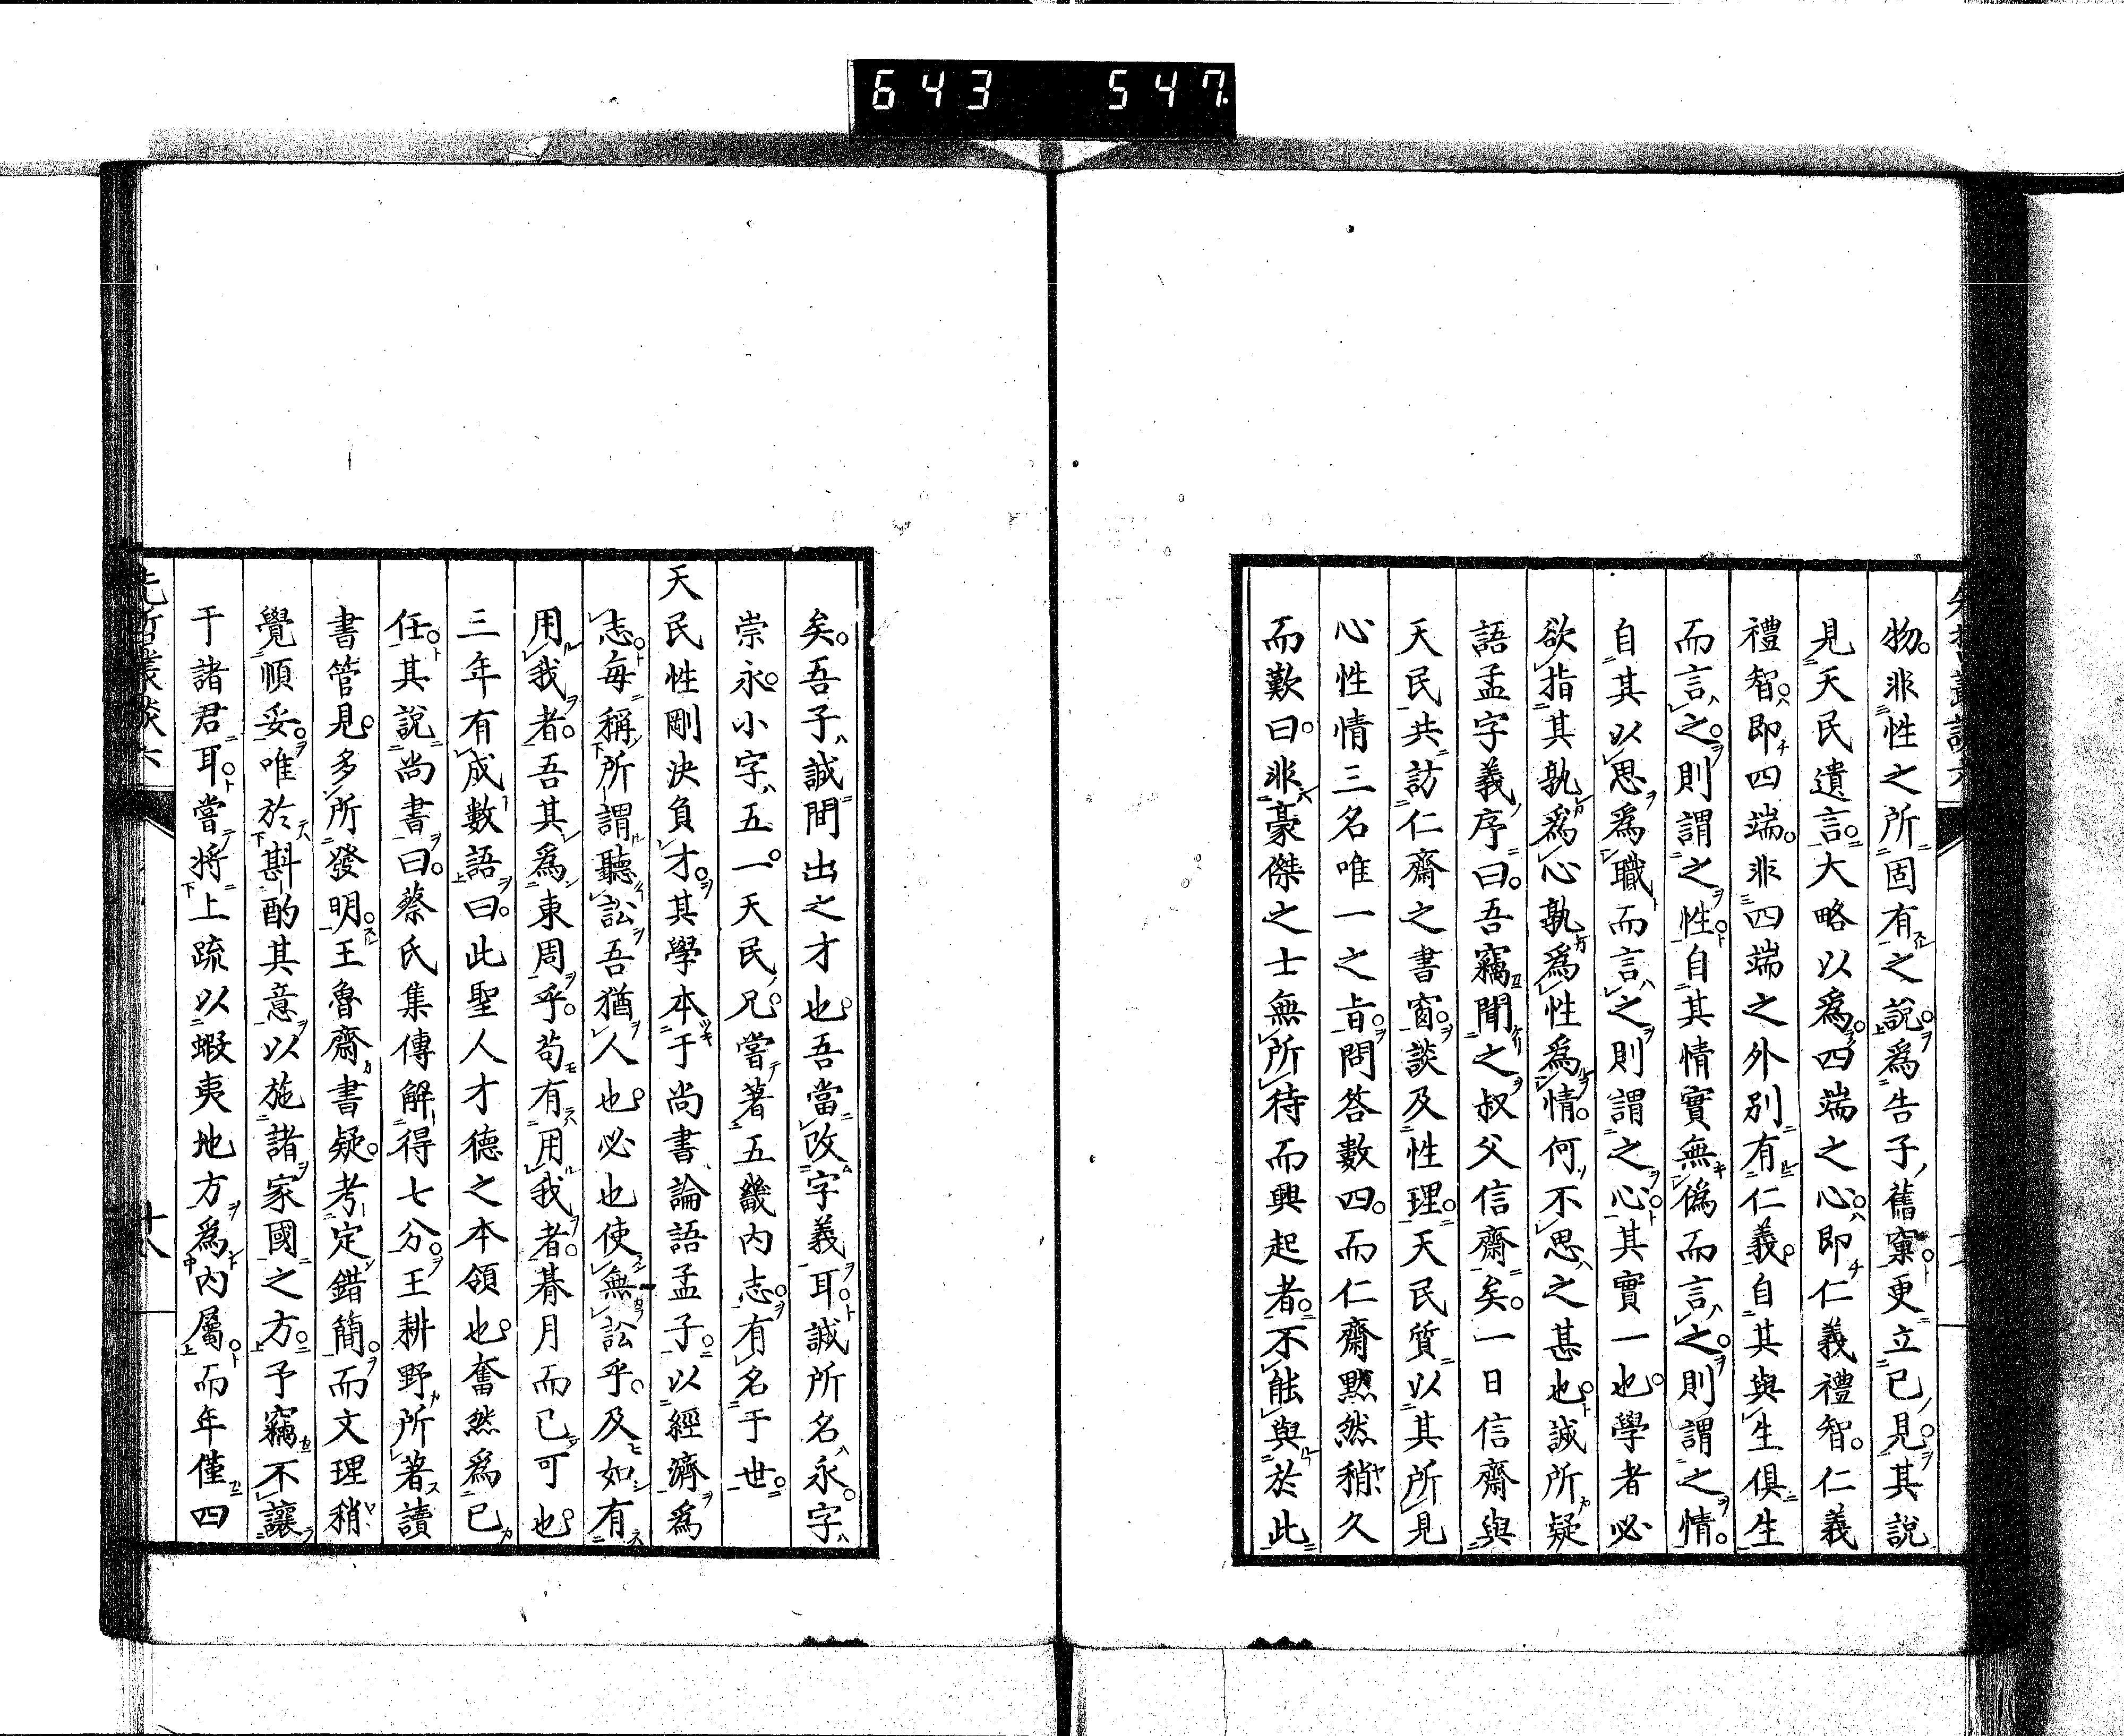 643 547
物。非性之所固有之說。爲告子舊窠更立已見。其說
見天民遺言。大略以爲四端之心。即仁義禮智。仁義
禮智。即四端。非四端之外別有仁義。自其與生俱生
而言之。則謂之性。自其情實無僞而言之。則謂之情。
自其以思爲職而言之則謂之心。其實一也。學者必
欲指其孰爲心孰爲性爲情。何不思之甚也。誠所疑
語孟字義序曰。吾竊聞之叔父信齋矣。一日信齋與
天民共訪仁齋之書窗。談及性理。天民質以其所見
心性情三名唯一之旨。問答數四。而仁齋默然稍久
而歎曰。非豪傑之士無所待而興起者。不能與於此
矣。吾子誠間出之才也。吾當改字義耳。誠所名永。字
崇永。小字五一。天民兄。嘗著五畿内志。有名于世。
天民性剛決負才。其學本于尚書論語孟子。以經濟爲
志。每稱所謂聽訟吾猶人也。必也使無訟乎。及如有
用我者。吾其爲東周乎。苟有用我者。朞月而已可也。
三年有成數語曰。此聖人才德之本領也。奮然爲已
任。其說尚書曰。蔡氏集傳解得七分。王耕野所著讀
書管見。多所發明。王魯齋書疑。考定錯簡。而文理稍
覺順妥。唯於斟酌其意以施諸家國之方。予竊不讓
于諸君耳。嘗將上疏以蝦夷地方爲内屬。而年僅四